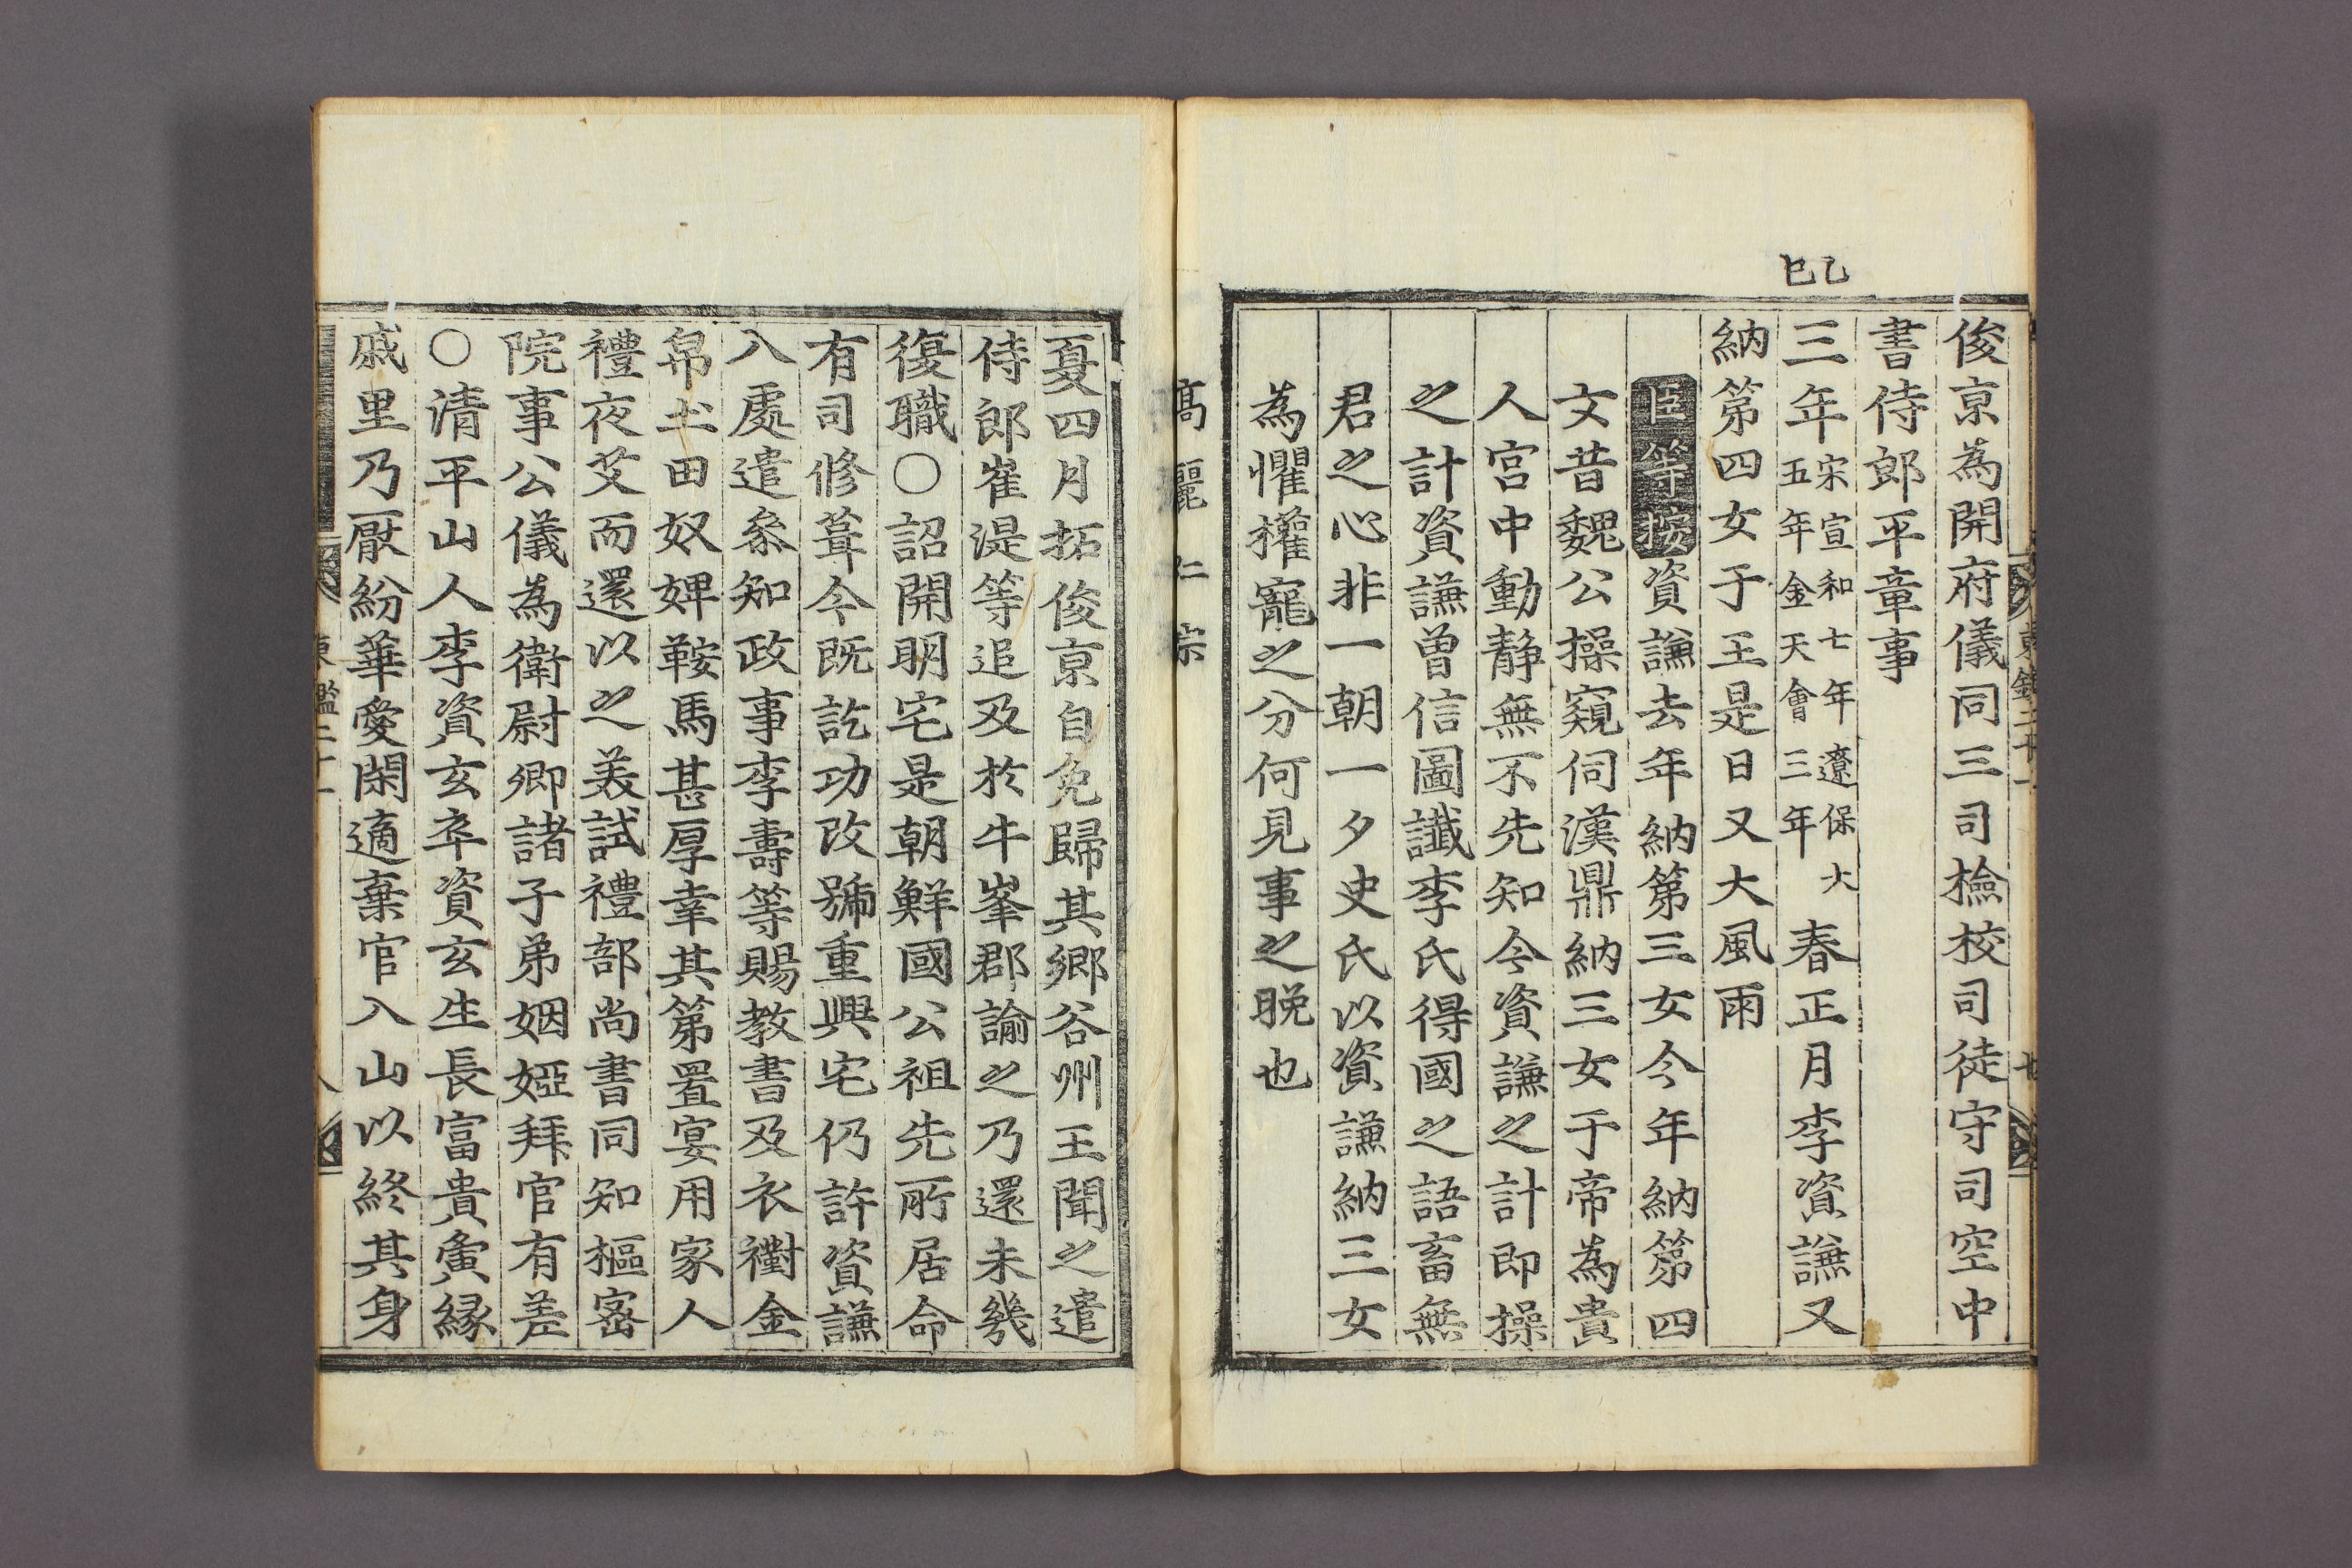 乙巳
俊京為開府儀同三司檢校司徒守司空中
書侍郎平章事
三年宋宣和七年遼保大五年金天會三年春正月李資謙又
納第四女于王是日又大風雨
臣等按資謙去年納第三女今年納第四
文昔魏公操窺伺漢鼎納三女于帝為貴
人宮中動靜無不先知今資謙之計即操
之計資謙曾信圖讖李氏得國之語畜無
君之心非一朝一夕史氏以資謙納三女
為懼權寵之分何見事之晚也
高麗仁宗
夏四月拓俊京自免歸其鄕谷州王聞之遣
侍郎崔湜等追及於牛峯郡諭之乃還未幾
復職○詔開明宅是朝鮮國公祖先所居命
有司修葺今既訖功改號重興宅仍許資謙
入處遣叅知政事李壽等賜教書及衣襨金
帛土田奴婢鞍馬甚厚幸其第置宴用家人
禮夜艾而還以之美試禮部尚書同知樞宻
院事公儀為衛尉卿諸子弟姻婭拜官有差
○清平山人李資玄卒資玄生長富貴夤縁
戚里乃厭紛華愛閑適棄官入山以終其身